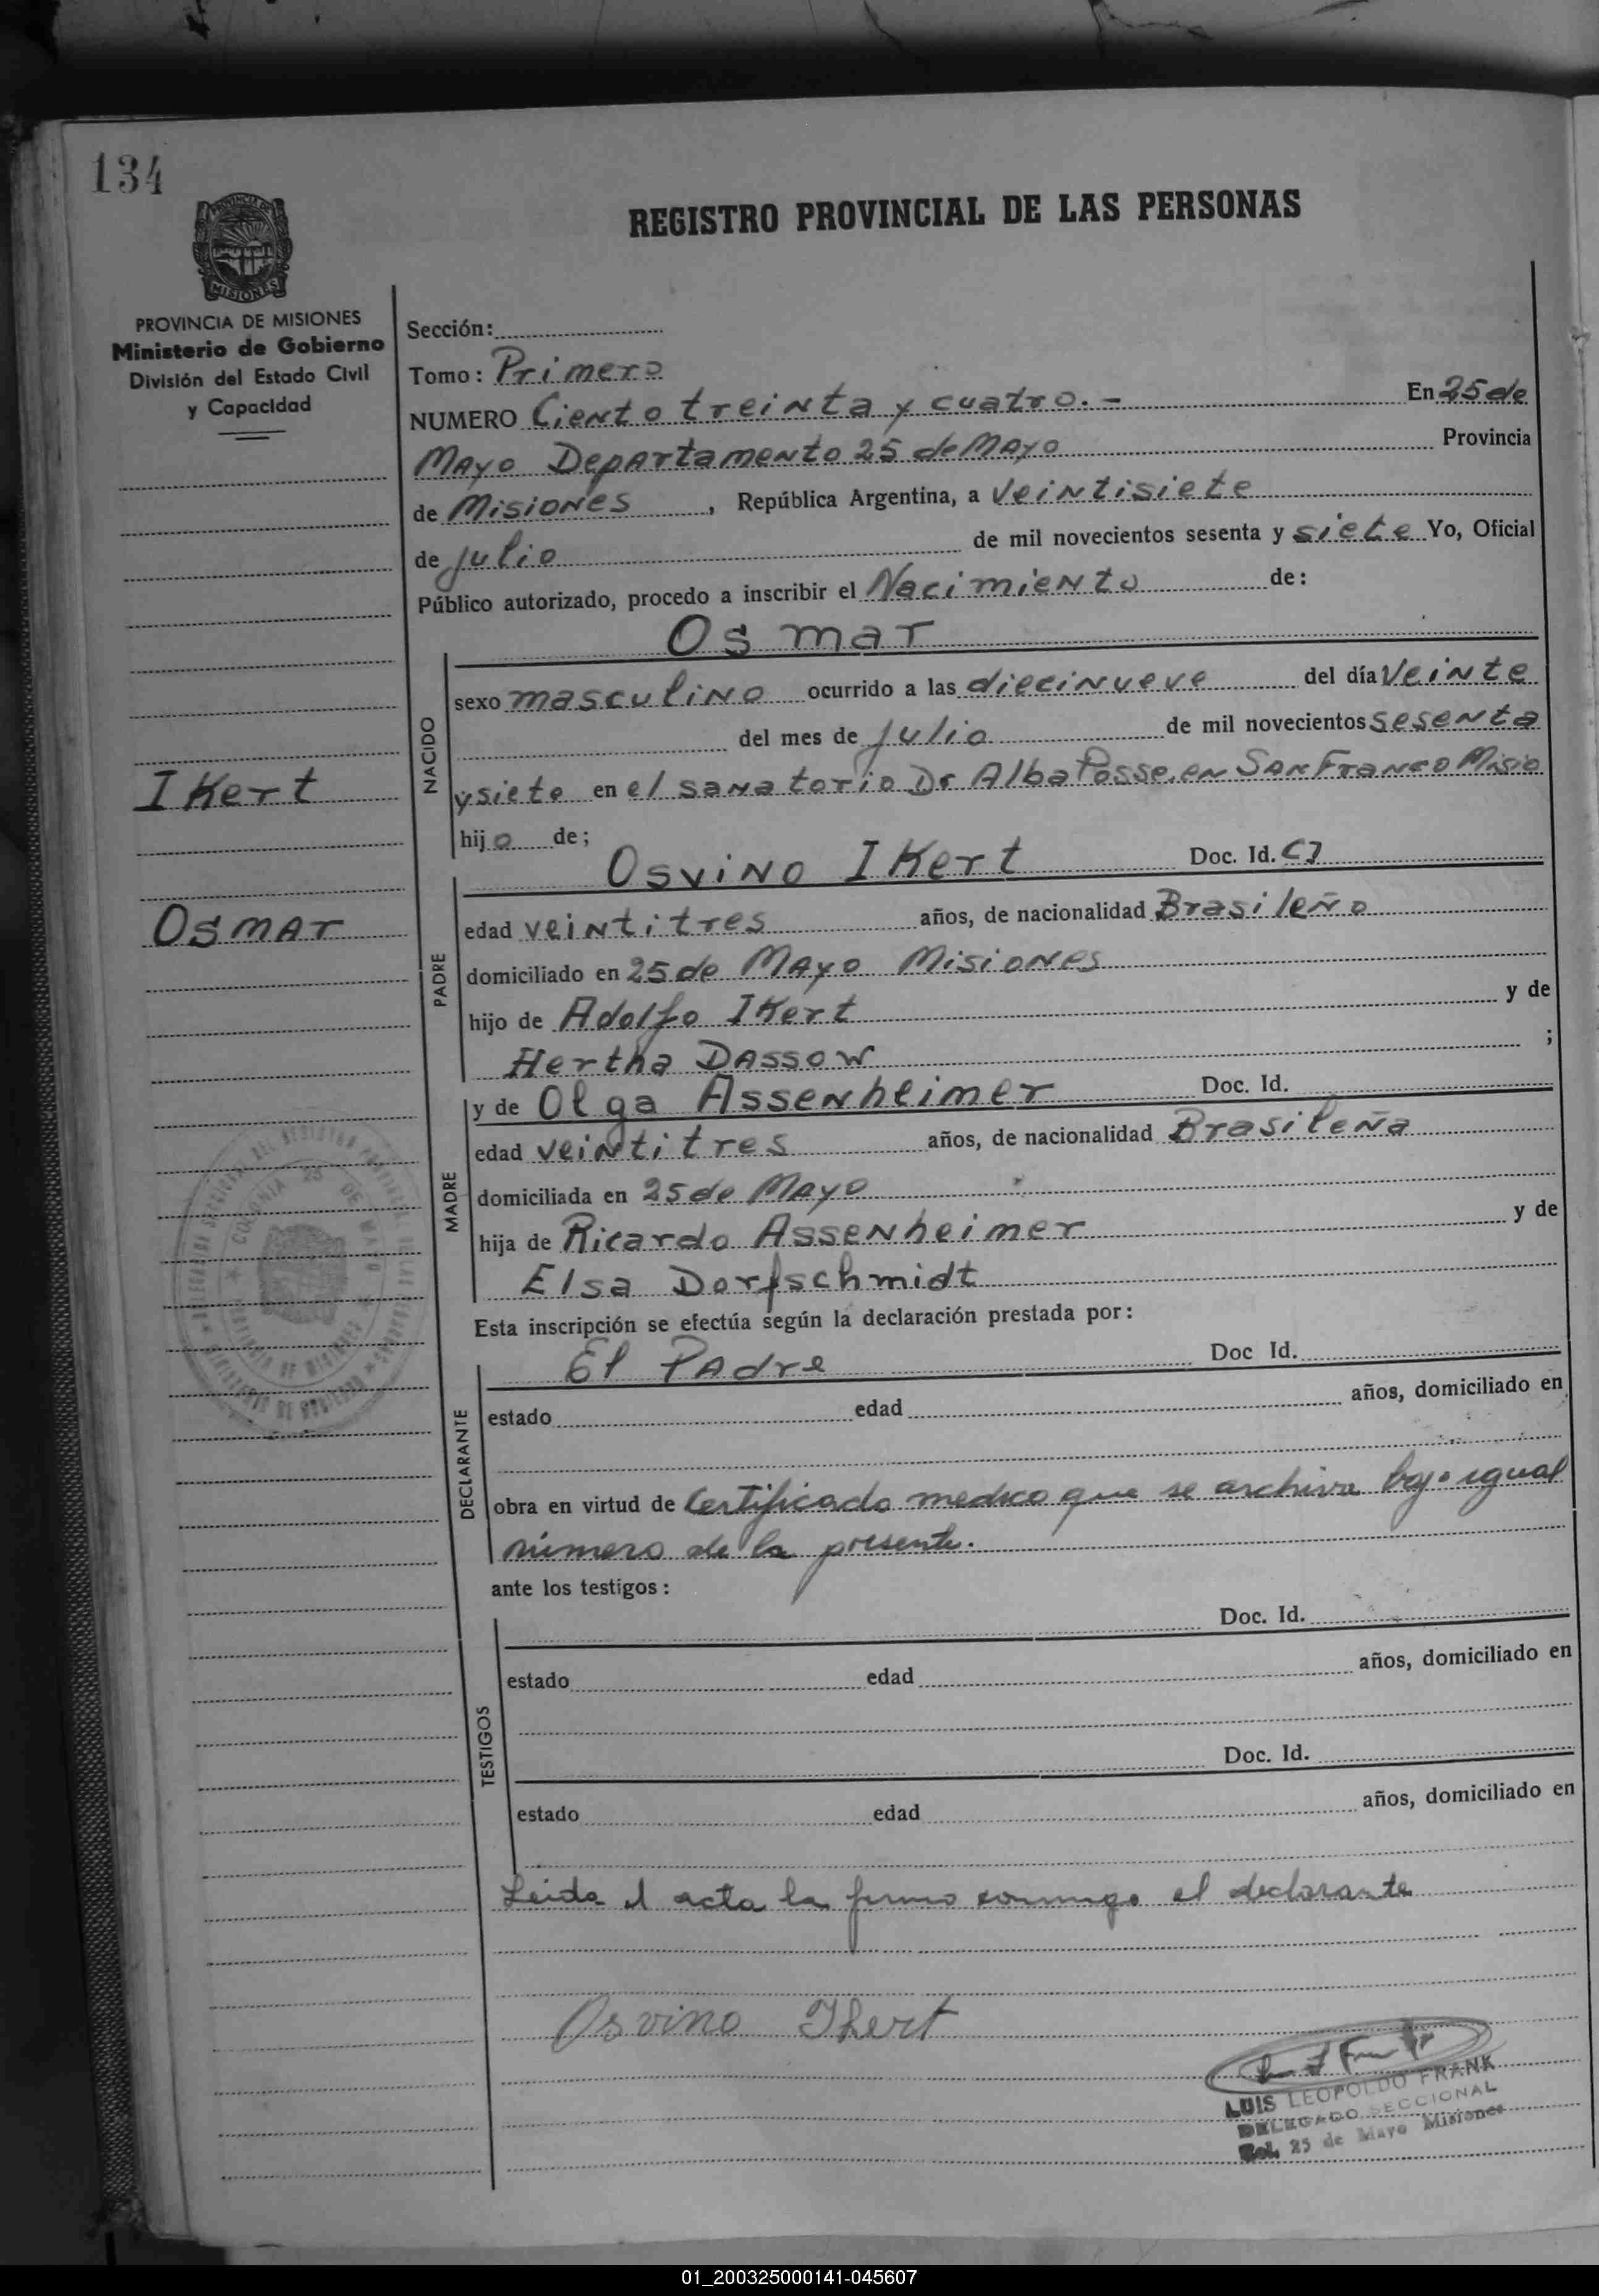 134
REGISTRO PROVINCIAL DE LAS PERSONAS
PROVINCIA DE
MISIONES
PROVINCIA DE MISIONES
Ministerio de Gobierno
División del Estado Civil
y Capacidad
Sección:
Tomo: Primero
NUMERO Ciento treinta y cuatro.- En 25 de
Mayo Departamento 25 de Mayo Provincia
de Misiones, República Argentina, a veintisiete
de julio de mil novecientos sesenta y siete Yo, Oficial
Público autorizado, procedo a inscribir el Nacimiento de:
Osmar
NACIDO
sexo masculino ocurrido a las diecinueve del día veinte
del mes de julio de mil novecientos sesenta
y siete en el sanatorio De Alba Posse, en San Franco Misio
hijo de;
IKert
Osmar
Osvino IKert Doc. Id. CI
PADRE
edad veintitres años, de nacionalidad Brasileño
domiciliado en 25 de Mayo Misiones
hijo de Adolfo IKert y de
Hertha Dassow ;
y de Olga Assenheimer Doc. Id.
MADRE
edad veintitres años, de nacionalidad Brasileña
domiciliada en 25 de Mayo
hija de Ricardo Assenheimer y de
Elsa Dorfschmidt
COLONIA 25 DE MAYO
PROVINCIA DE MISIONES
MINISTERIO DE GOBIERNO
Esta inscripción se efectúa según la declaración prestada por:
El Padre Doc Id.
DECLARANTE
estado edad años, domiciliado en
obra en virtud de Certificado medico que se archiva bajo igual
número de la presente.
ante los testigos:
Doc. Id.
TESTIGOS
estado edad años, domiciliado en
Doc. Id.
estado edad años, domiciliado en
Leida el acta la firma conmigo el declarante
Osvino Ikert
LUIS LEOPOLDO FRANK
DELEGADO SECCIONAL
Col. 25 de Mayo Misiones
01_200325000141-045607